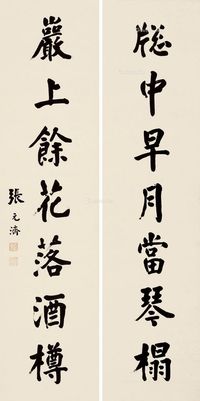 牕中早月當琴榻
巖上餘花落酒樽
張元濟